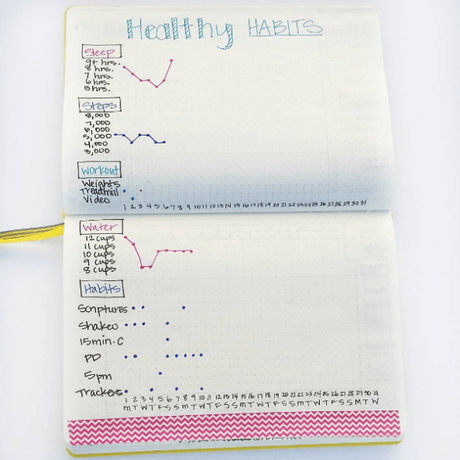 Healthy HABITS
Sleep
9+ hrs.
8 hrs.
7 hrs.
6 hrs.
5 hrs.
Steps
8,000
7,000
6,000
5,000
4,000
3,000
Workout
Weights
Treadmill
Video
1 2 3 4 5 6 7 8 9 10 11 12 13 14 15 16 17 18 19 20 21 22 23 24 25 26 27 28 29 30 31
Water
12 cups
11 cups
10 cups
9 cups
8 cups
Habits
Scriptures
Shakeo
15min.C
PD
5pm
Trackers
1 2 3 4 5 6 7 8 9 10 11 12 13 14 15 16 17 18 19 20 21 22 23 24 25 26 27 28 29 30 31
M T W T F S S M T W T F S S M T W T F S S M T W T F S S M T W